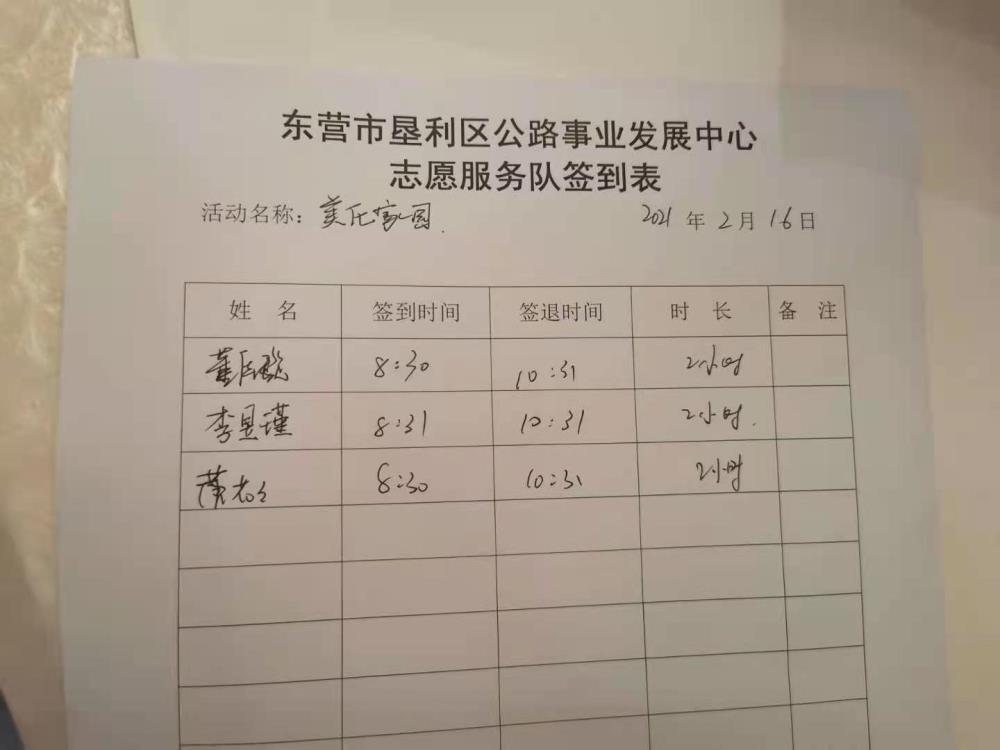 东营市垦利区公路事业发展中心
志愿服务队签到表
活动名称：美化家园 2021 年 2 月 16 日
姓 名 签到时间 签退时间 时 长 备 注
8:30 10:31 2小时
李昱瑾 8:31 10:31 2小时
8:30 10:31 2小时